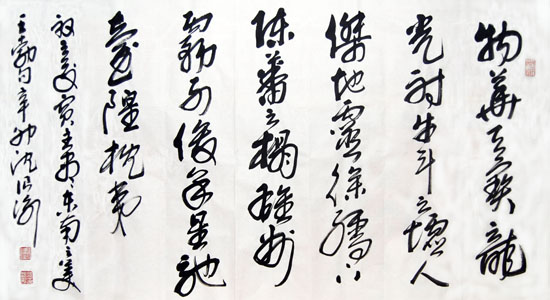 物華天寶龍
光射牛斗之墟人
傑地靈徐孺下
陳蕃之榻雄州
霧列俊采星馳
臺隍枕夷
夏之交賓主盡東南之美
王勃句辛卯